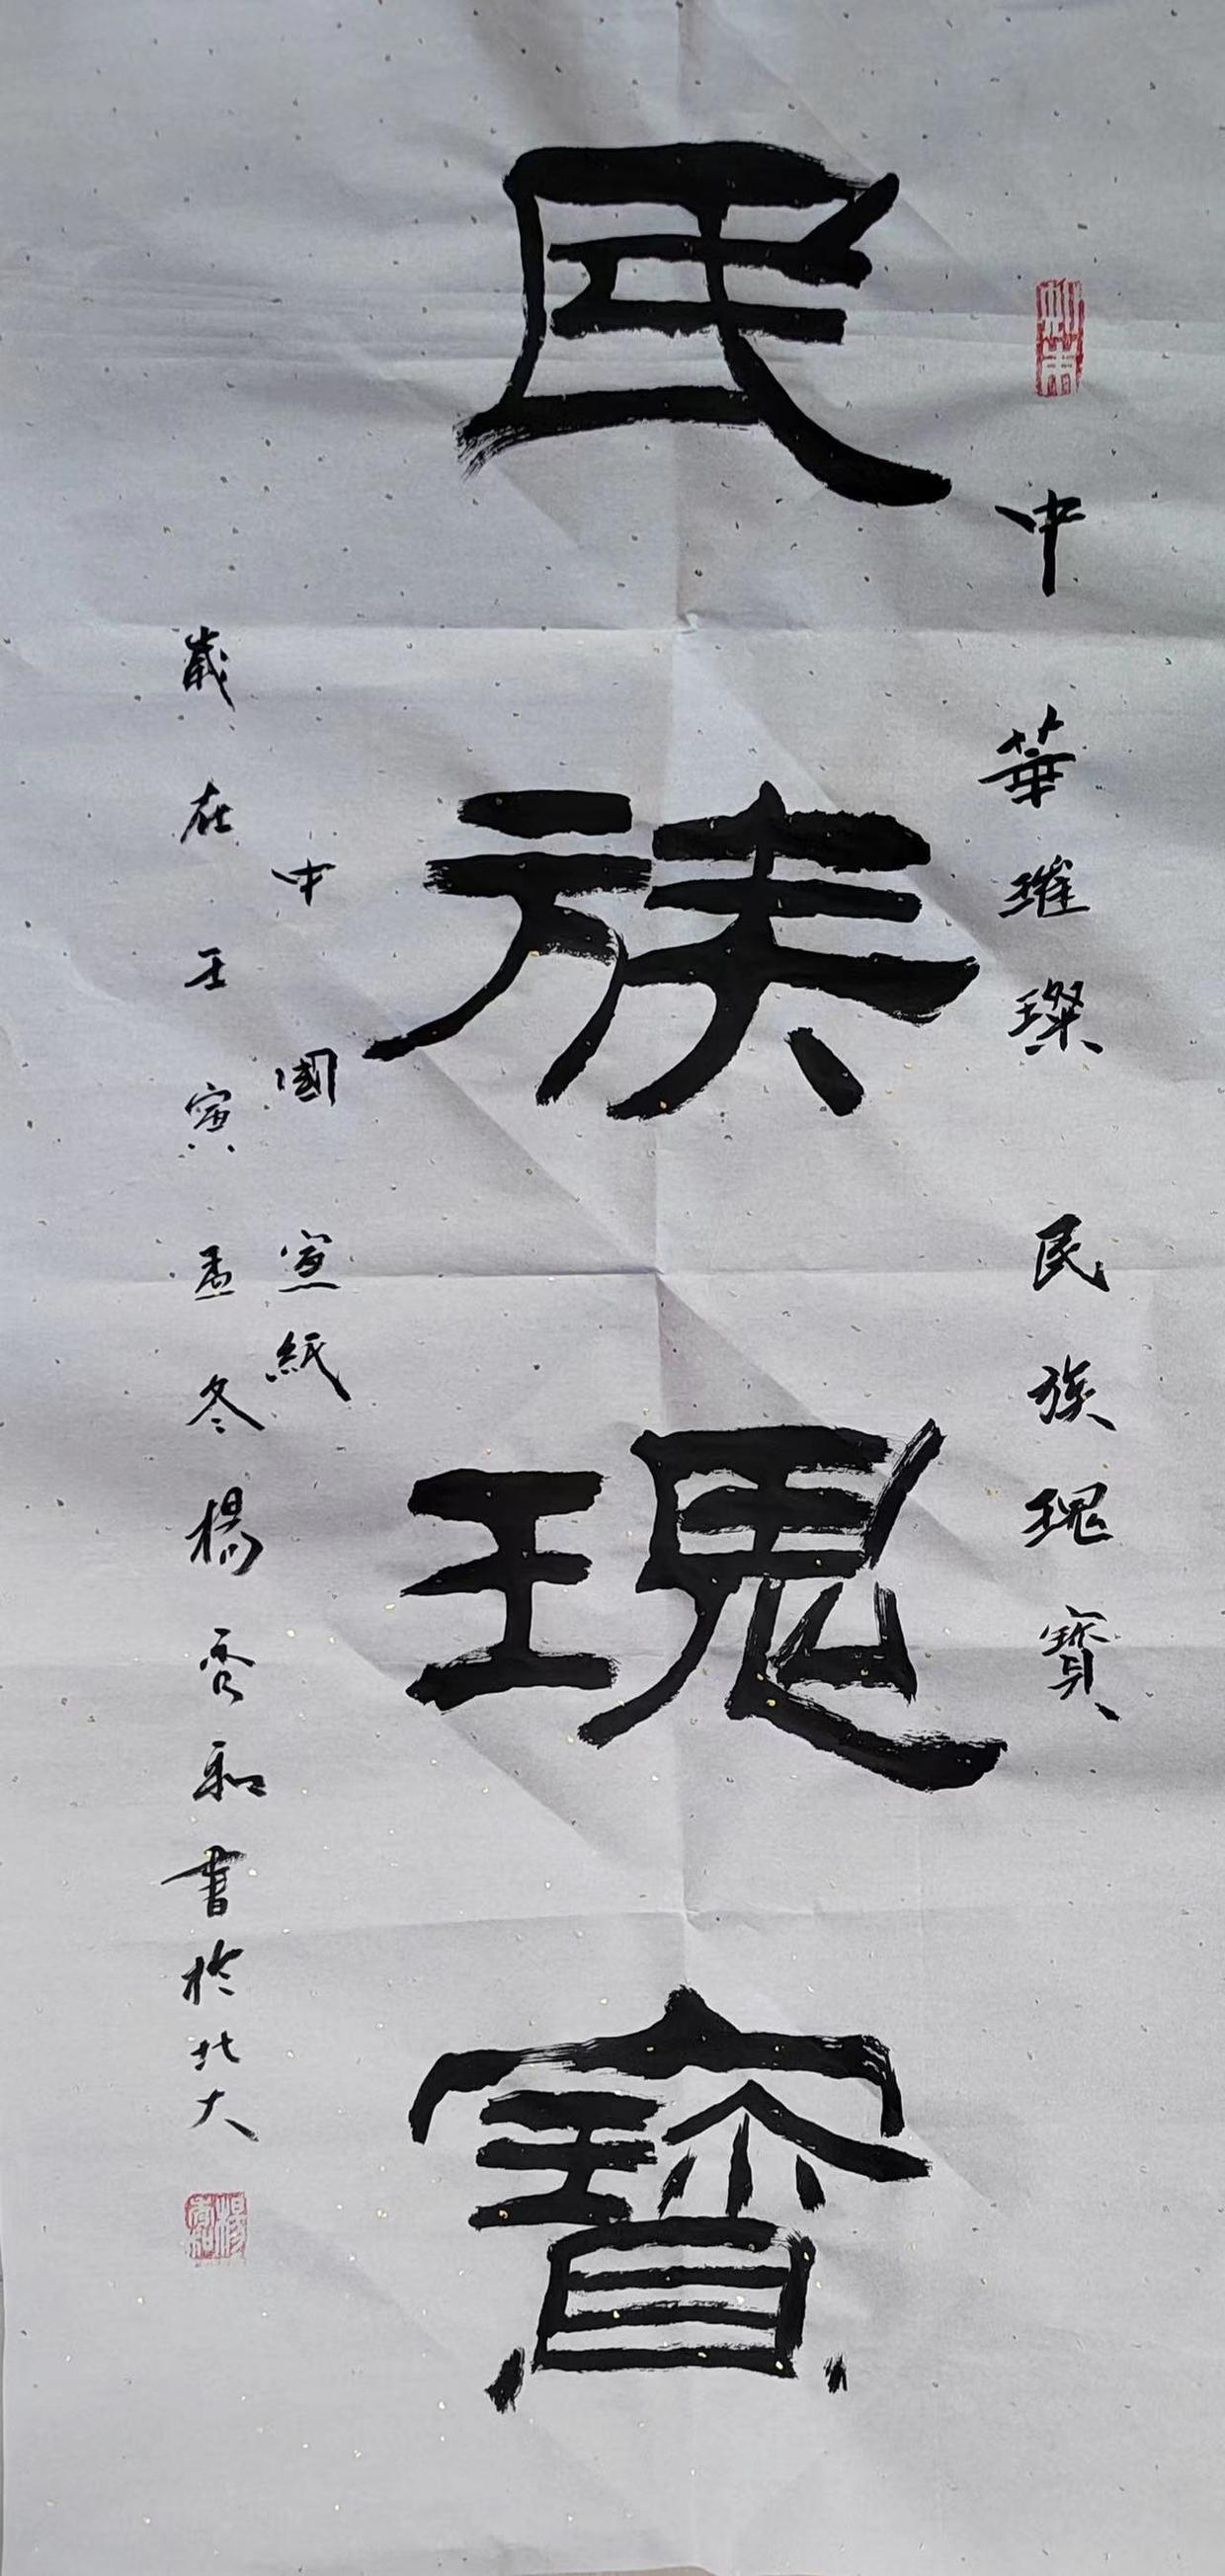 中華璀璨民族瑰寶
民族瑰寶
中國宣紙
歲在壬寅孟冬楊秀和書於北大